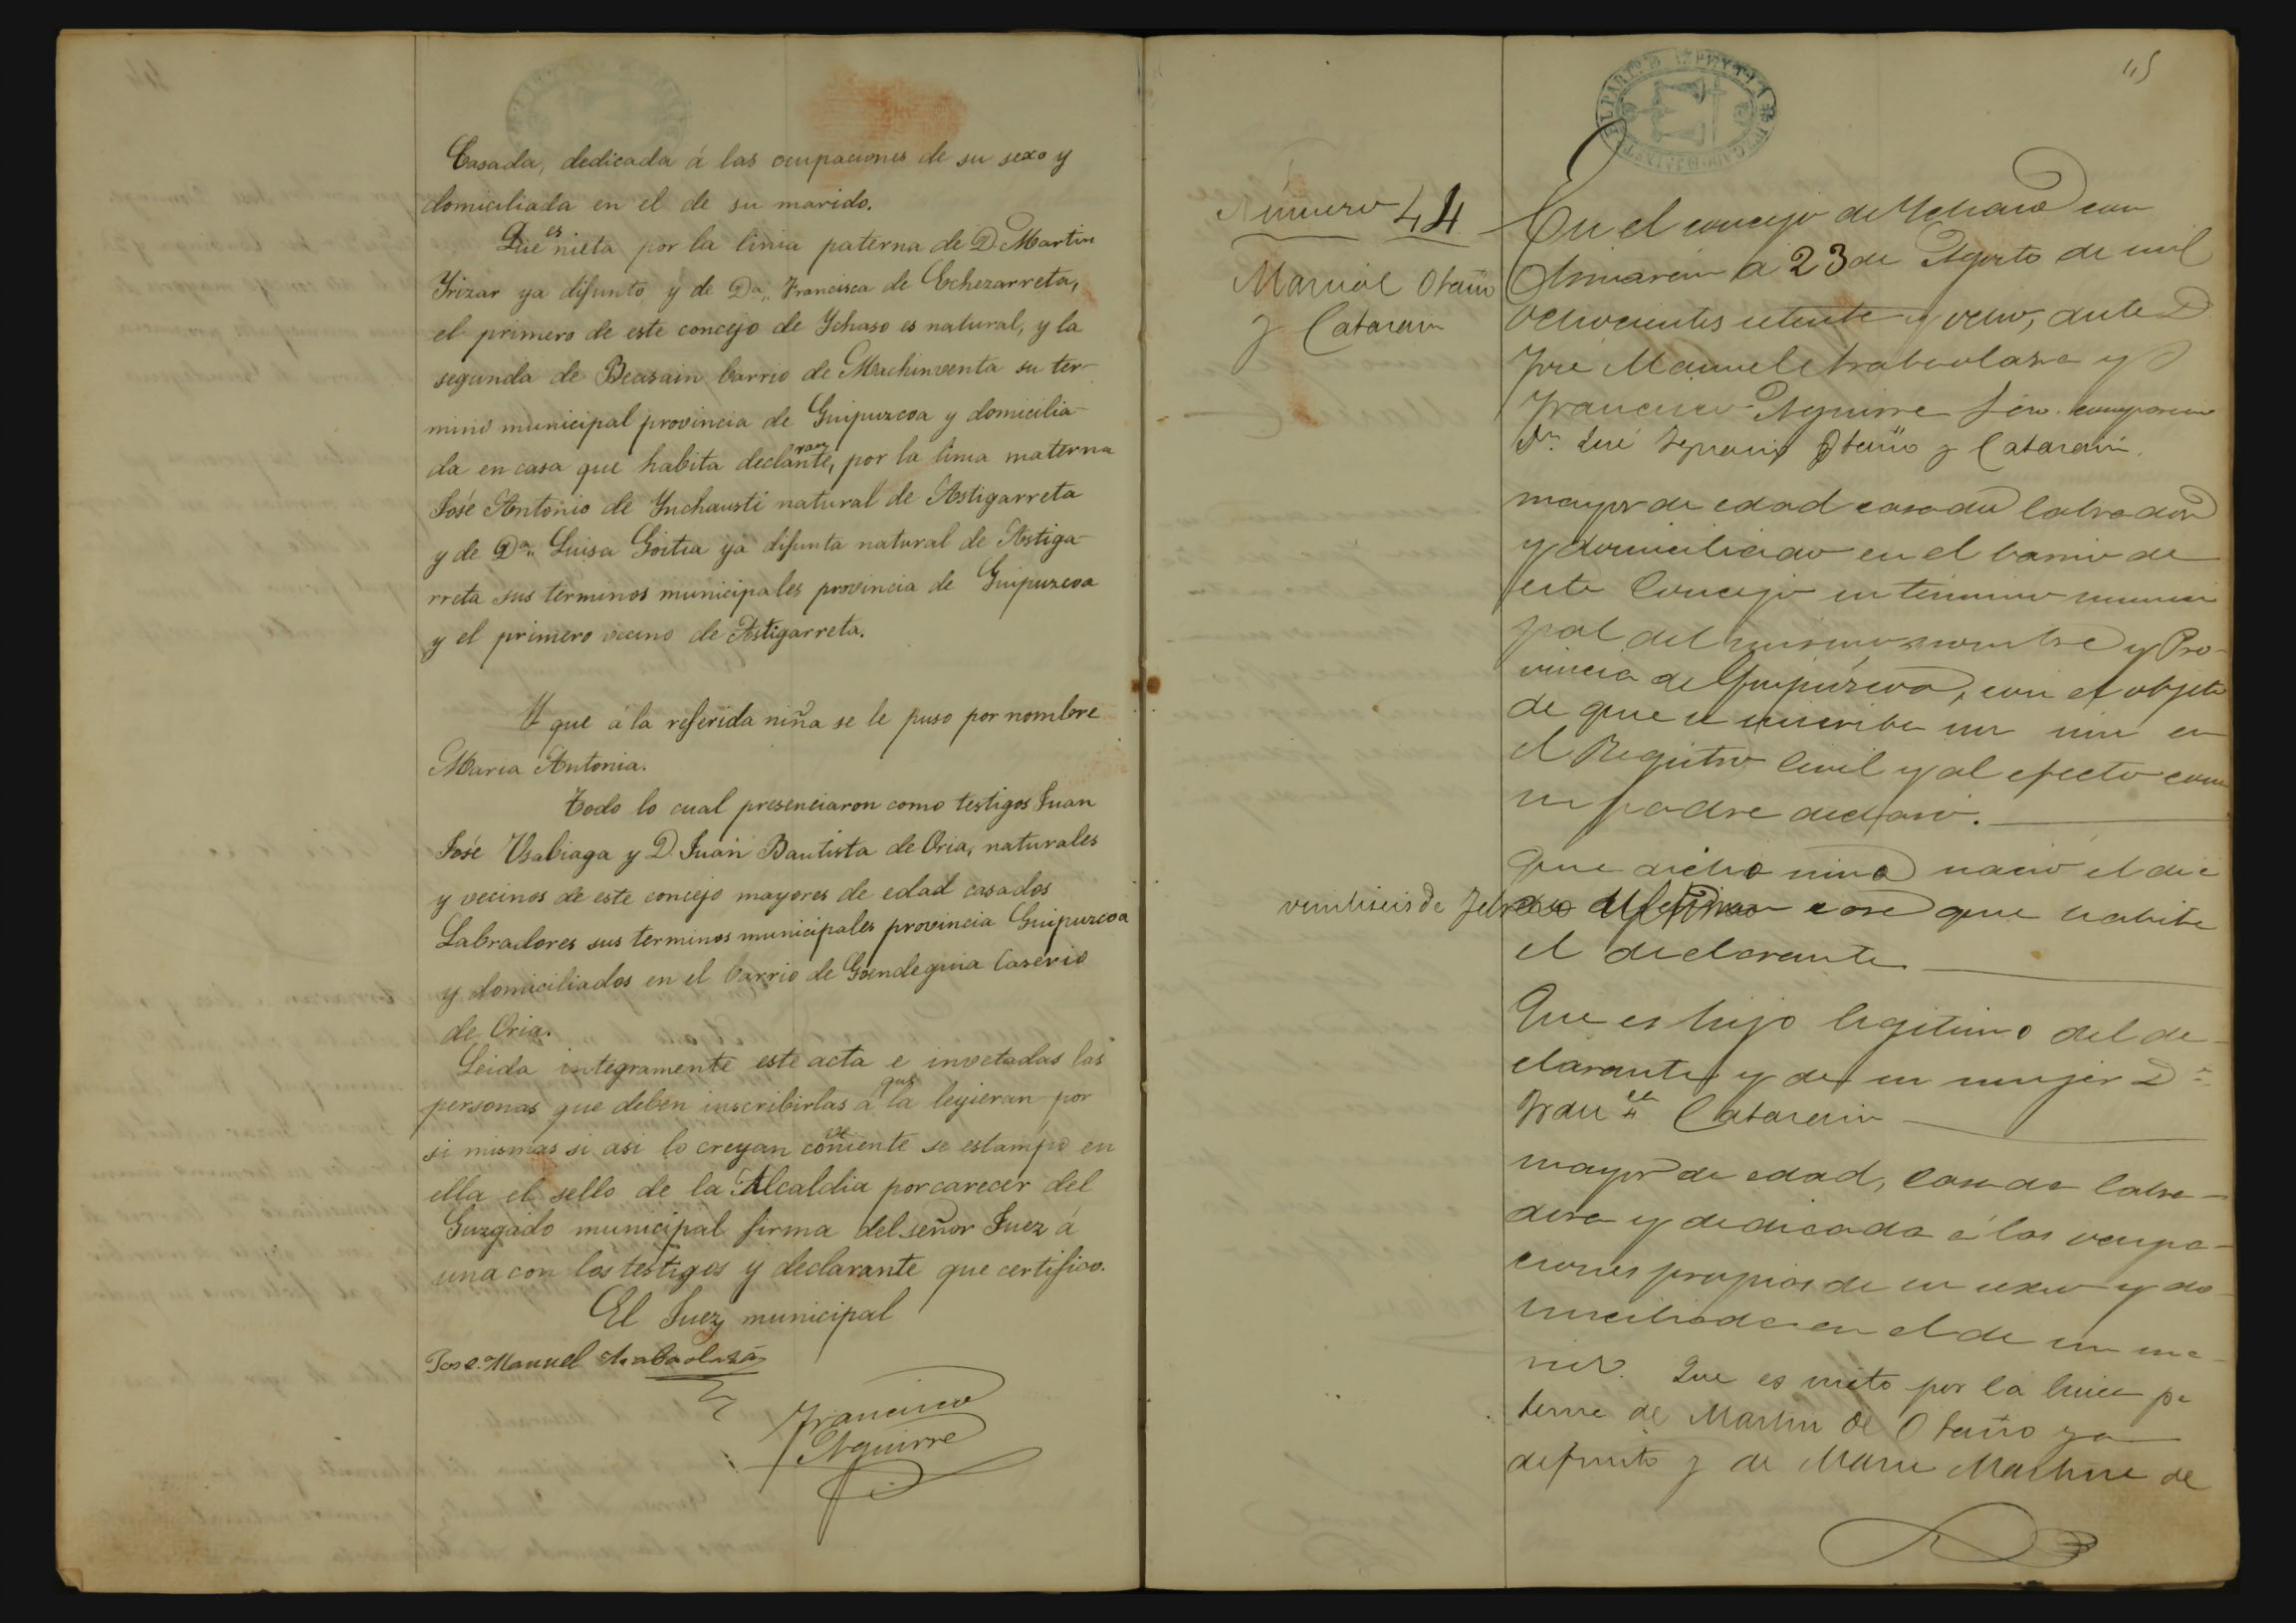 Casada, dedicada á las ocupaciones de su sexo y
domiciliada en el de su marido.
Que es nieta por la linia paterna de D. Martin
Yrizar ya difunto y de Da,, Francisca de Echezarreta,
el primero de este concejo de Ychaso es natural, y la
segunda de Beasain barrio de Machinventa su ter-
mino municipal provincia de Guipuzcoa y domicilia-
da en casa que habita declarante, por la linia materna
José Antonio de Ynchausti natural de Astigarreta
y de Da,, Luisa Goitia ya difunta natural de Astiga-
rreta sus terminos municipales provincia de Guipuzcoa
y el primero vecino de Astigarreta.
Y que á la referida niña se le puso por nombre
Maria Antonia.
Todo lo cual presenciaron como testigos Juan
José Usabiaga y D. Juan Bautista de Oria, naturales
y vecinos de este concejo mayores de edad casados
Labradores sus terminos municipales provincia Guipuzcoa
y domiciliados en el barrio de Goendeguia Caserio
de Oria.
Leida integramente este acta e invetadas las
personas que deben inscribirlas á que la leyieran por
si mismas si asi lo creyan conveniente se estampó en
ella el sello de la Alcaldia por carecer del
Guzgado municipal firma del señor Juez á
una con los testigos y declarante que certifico.
El Juez municipal
Jose Manuel Arabaolaza
Francisco
Aguirre
45
Número 44
Marcial Otaño
y Catarain
En el concejo de Ychaso con
Arriaran a 23 de Agosto de mil
ochocientos setenta y ocho, ante D
José Manuel Arabaolaza y
Francisco Aguirre Srio. comparecio
Dn. José Ignacio Otaño y Catarain.
mayor de edad casado labrador
y domiciliado en el barrio de
este Concejo su termino munici
pal del mismo nombre y Pro-
vincia de Guipúzcoa, con el objeto
de que se inscriba un niño en
el Registro Civil y al efecto como
su padre declaró.
Que dicho niño nació el dia
veintiseis de Febrero casa que habita
el declarante
Que es hijo legitimo del de-
clarante y de su mujer Da
Franca Catarain
mayor de edad, casada labra-
dora y dedicada á las ocupa-
ciones propias de su sexo y do-
miciliada en el de su ma-
rido. Que es nieto por la linea pa
terna de Martin de Otaño ya
difunto y de Maria Martina de